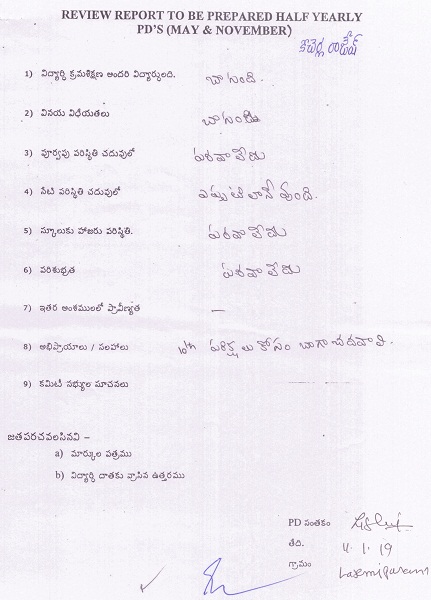 REVIEW REPORT TO BE PREPARED HALF YEARLY
PD'S (MAY & NOVEMBER)
కొవెర్ల రాజేష్
1) విద్యార్థి క్రమశిక్షణ అందరి విద్యార్థులది. బాగుంది.
2) వినయ విధేయతలు బాగుంది
3) పూర్వపు పరిస్థితి చదువులో పరవాలేదు
4) నేటి పరిస్థితి చదువులో ఎప్పుటిలానే వుంది.
5) స్కూలుకు హాజరు పరిస్థితి. పరవాలేదు
6) పరిశుభ్రత పరవాలేదు
7) ఇతర అంశములలో ప్రావీణ్యత —
8) అభిప్రాయాలు / సలహాలు 10th పరిక్షలు కోసం బాగా చదవాలి.
9) కమిటీ సభ్యుల సూచనలు
జతపరచవలసినవి –
a) మార్కుల పత్రము
b) విద్యార్థి దాతకు వ్రాసిన ఉత్తరము
PD సంతకం
తేది. 4.1.19
గ్రామం Laxmipuram